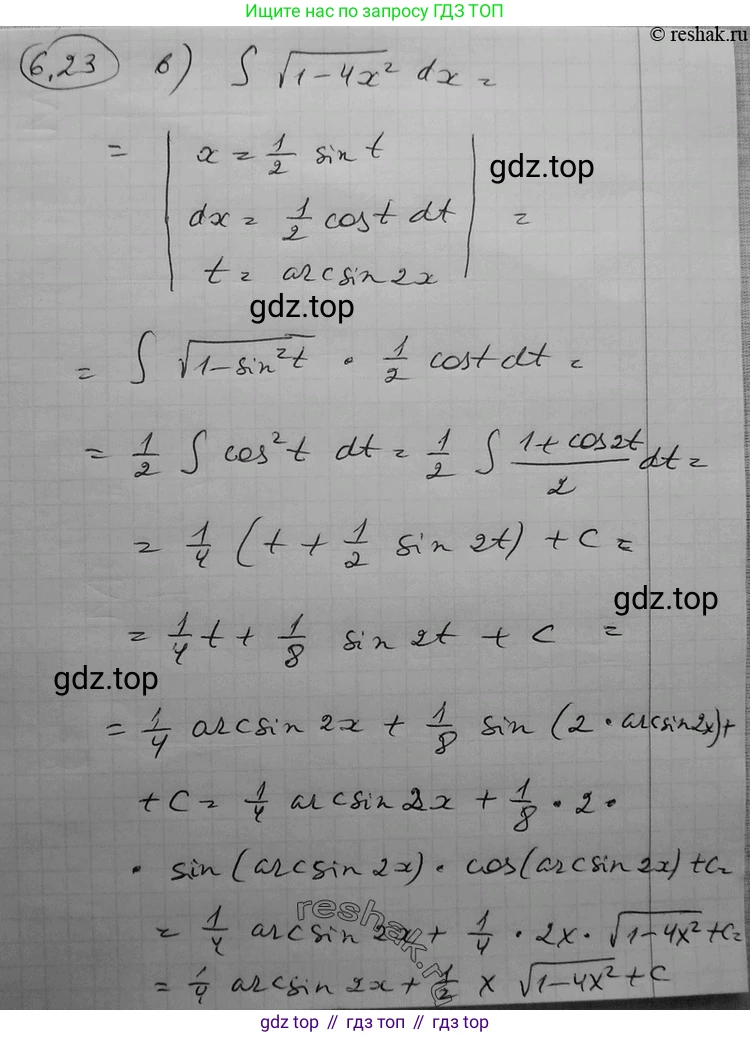 Ищите нас по запросу ГДЗ ТОП
© reshak.ru
6,23 в) ∫ √(1-4x²) dx =
= | x = 1/2 sin t
gdz.top
dx = 1/2 cost dt | =
t = arcsin 2x
gdz.top
= ∫ √(1-sin²t) · 1/2 cost dt =
= 1/2 ∫ cos²t dt = 1/2 ∫ (1+cos2t)/2 dt =
= 1/4 (t + 1/2 sin 2t) + C =
gdz.top
= 1/4 t + 1/8 sin 2t + C =
gdz.top
= 1/4 arcsin 2x + 1/8 sin (2 · arcsin2x) +
+ C = 1/4 arcsin 2x + 1/8 · 2 ·
· sin (arcsin 2x) · cos (arcsin 2x) + C =
= 1/4 arcsin 2x + 1/4 · 2x · √(1-4x²) + C =
reshak.ru
= 1/4 arcsin 2x + 1/2 x √(1-4x²) + C
gdz top // гдз топ // gdz top